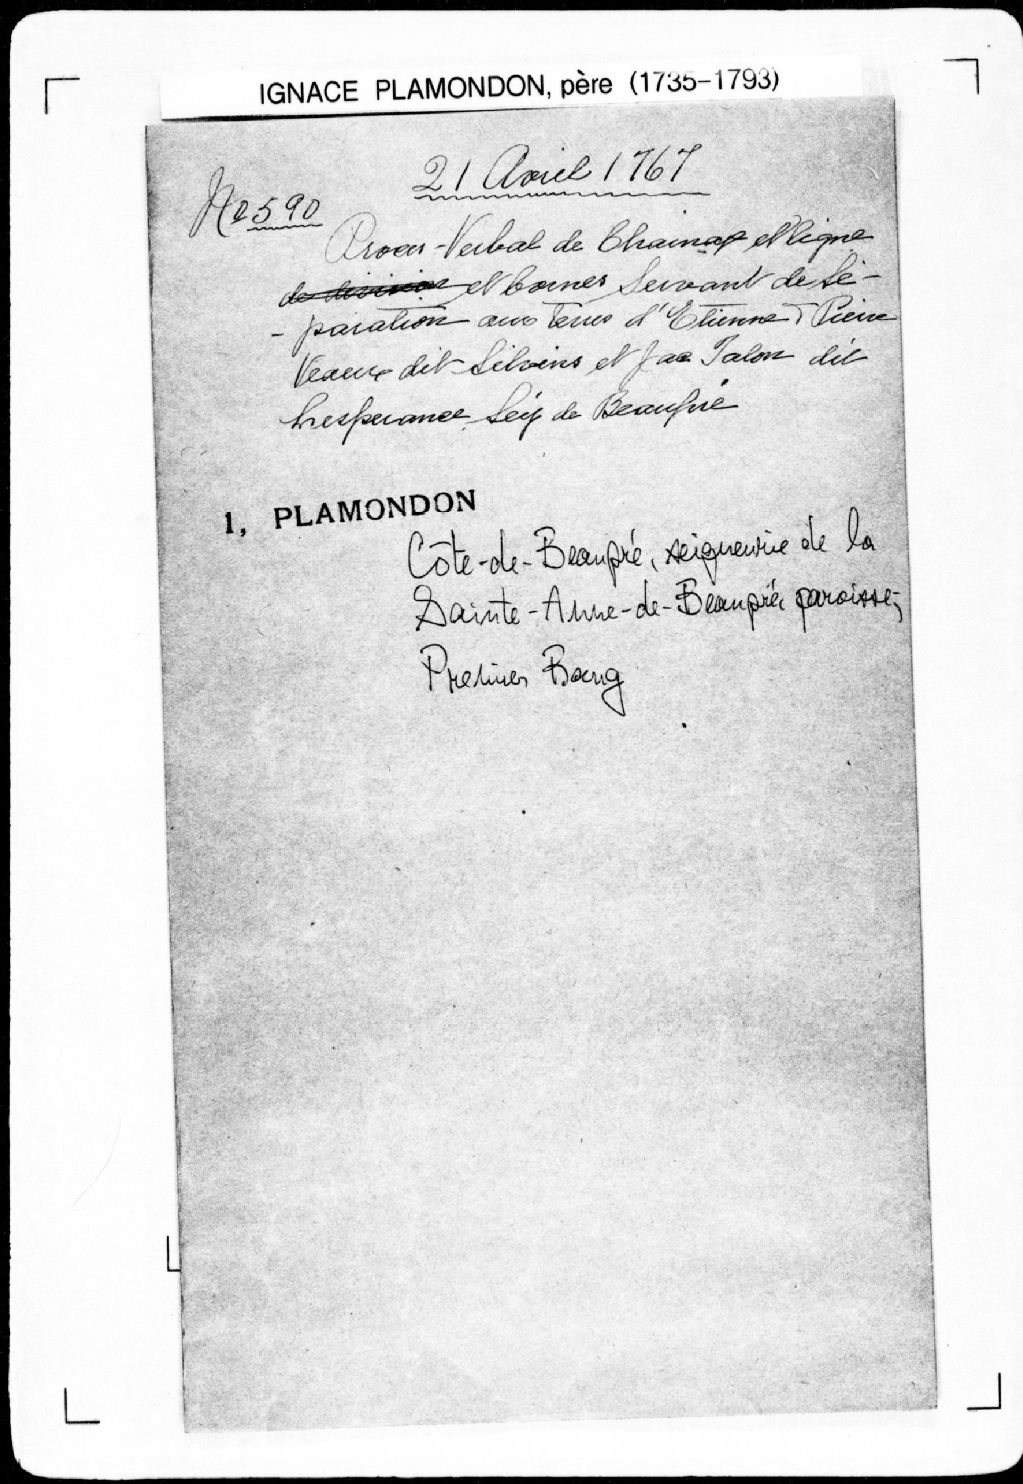 IGNACE PLAMONDON, père (1735–1793)
21 Avril 1767
No 590
Procès-Verbal de Chainage et ligne
de division et bornes Servant de Sé-
-paration aux terres d'Etienne & Pierre
Veaux dit Silvins et Jac Talon dit
Lesperance Seig de Beaupré
1, PLAMONDON
Côte-de-Beaupré, seigneurie de la
Sainte-Anne-de-Beaupré, paroisse;
Premier Rang